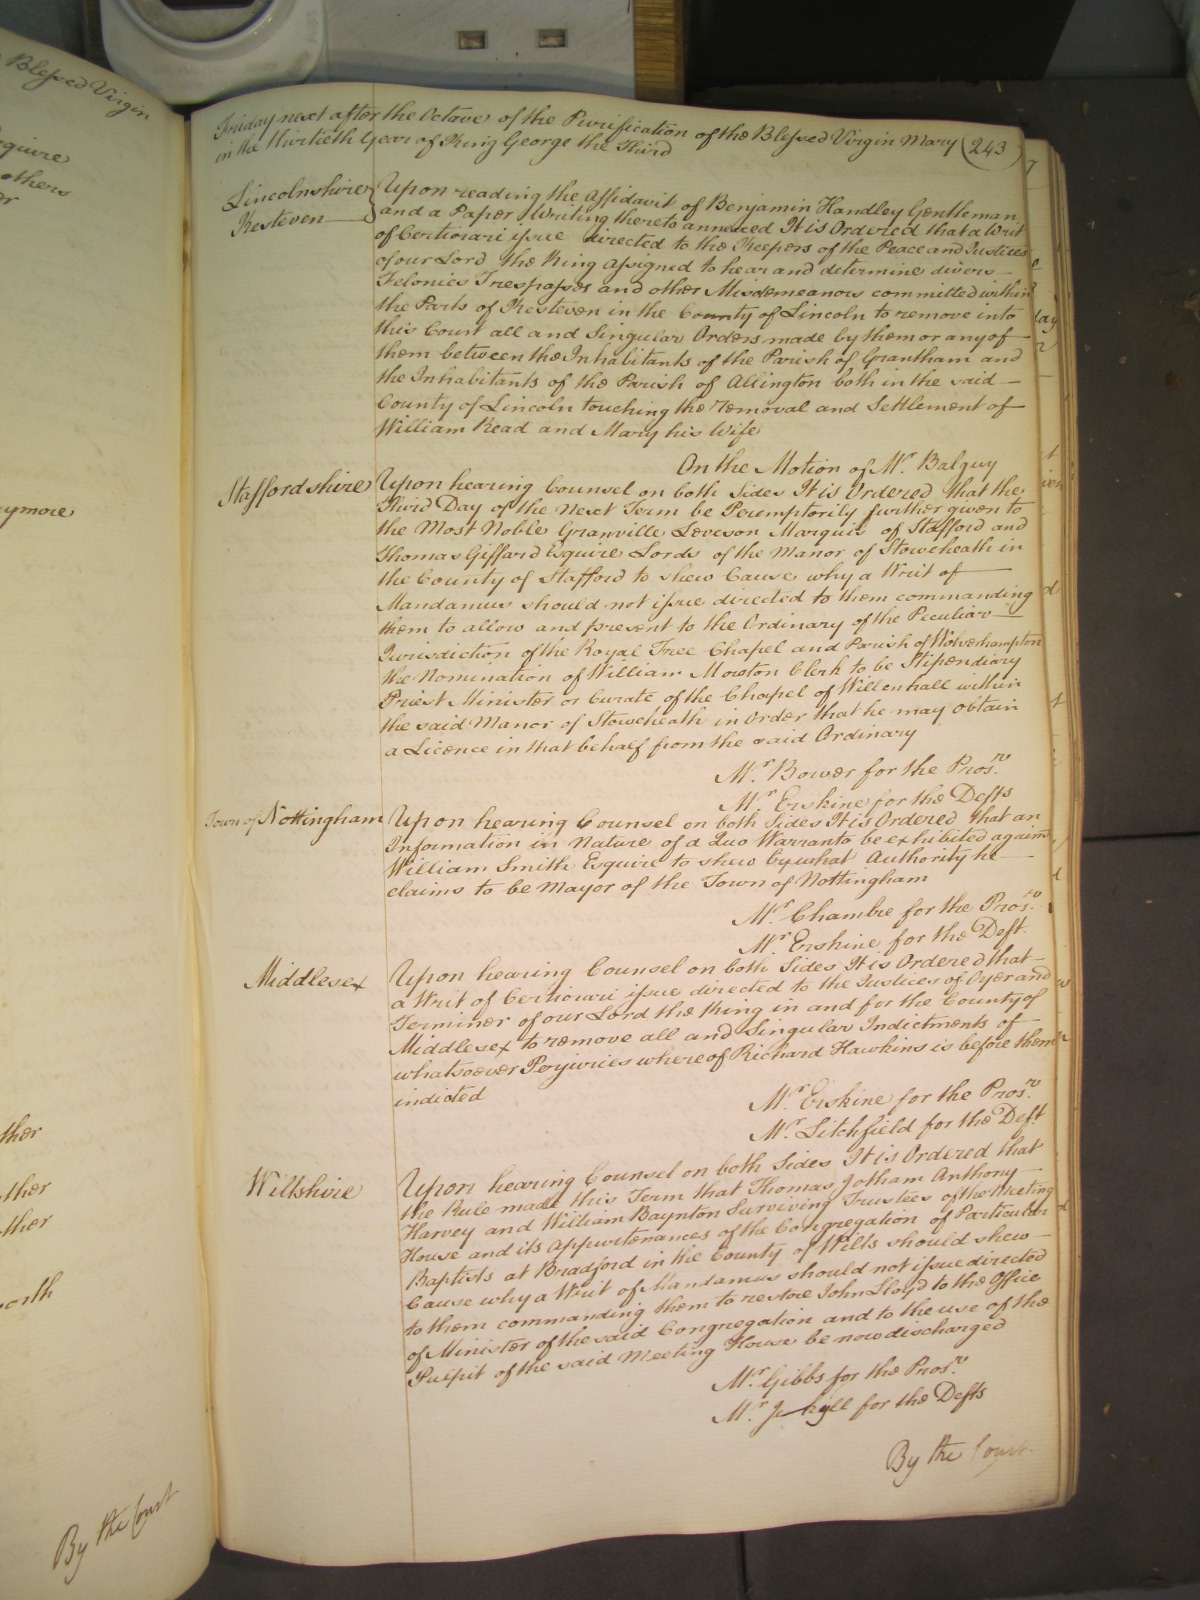 Blessed Virgin
quire
others
ymore
ther
ther
ther
orth
By the Court
Friday next after the Octave of the Purification of the Blessed Virgin Mary (243)
in the thirtieth Year of King George the Third
Lincolnshire
Kesteven
Upon reading the Affidavit of Benjamin Handley Gentleman
and a Paper Writing thereto annexed It is Ordered that a Writ
of Certiorari issue directed to the Keepers of the Peace and Justices
of our Lord the King assigned to hear and determine divers
Felonies Trespasses and other Misdemeanors committed within
the Parts of Kesteven in the County of Lincoln to remove into
this Court all and Singular Orders made by them or any of
them between the Inhabitants of the Parish of Grantham and
the Inhabitants of the Parish of Allington both in the said
County of Lincoln touching the removal and Settlement of
William Read and Mary his Wife
On the Motion of Mr. Balguy
Staffordshire
Upon hearing Counsel on both Sides It is Ordered that the
third Day of the next Term be Peremptorily further given to
the Most Noble Granville Leveson Marquis of Stafford and
Thomas Giffard Esquire Lords of the Manor of Stowheath in
the County of Stafford to shew Cause why a Writ of
Mandamus should not issue directed to them commanding
them to allow and present to the Ordinary of the Peculiar
Jurisdiction of the Royal Free Chapel and Parish of Wolverhampton
the Nomination of William Moreton Clerk to be Stipendiary
Priest Minister or Curate of the Chapel of Willenhall within
the said Manor of Stowheath in Order that he may obtain
a Licence in that behalf from the said Ordinary
Mr. Bower for the Prosr.
Mr. Erskine for the Defts
Town of Nottingham
Upon hearing Counsel on both Sides It is Ordered that an
Information in Nature of a Quo Warranto be exhibited against
William Smith Esquire to shew by what Authority he
claims to be Mayor of the Town of Nottingham
Mr. Chambre for the Prosr.
Mr. Erskine for the Deft.
Middlesex
Upon hearing Counsel on both Sides It is Ordered that
a Writ of Certiorari issue directed to the Justices of Oyer and
Terminer of our Lord the King in and for the County of
Middlesex to remove all and Singular Indictments of
whatsoever Perjuries whereof Richard Hawkins is before them
indicted
Mr. Erskine for the Prosr.
Mr. Litchfield for the Deft
Wiltshire
Upon hearing Counsel on both Sides It is Ordered that
the Rule made this Term that Thomas Jotham Anthony
Harvey and William Baynton Surviving Trustees of the Meeting
House and its Appurtenances of the Congregation of Particular
Baptists at Bradford in the County of Wilts should shew
Cause why a Writ of Mandamus should not issue directed
to them commanding them to restore John Lloyd to the Office
of Minister of the said Congregation and to the use of the
Pulpit of the said Meeting House be now discharged
Mr. Gibbs for the Prosr.
Mr. Jekyll for the Defts
By the Court